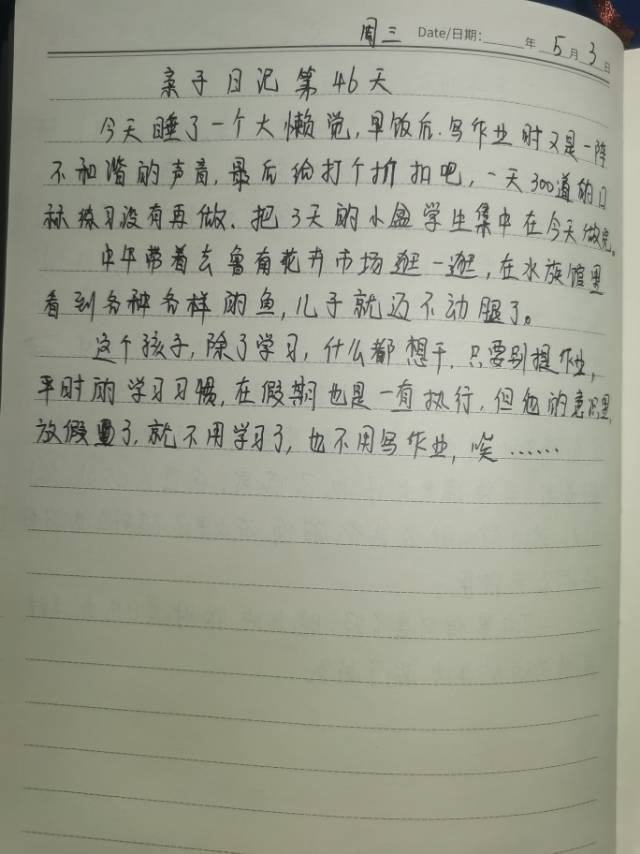 周三 Date/日期: 年 5月 3日
亲子日记第46天
今天睡了一个大懒觉,早饭后.写作业时又是一阵
不和谐的声音,最后给打个折扣吧,一天300道的口
标练习没有再做.把3天的小盒学生集中在今天做完。
中午带着去鲁南花卉市场逛一逛,在水族馆里
看到各种各样的鱼,儿子就迈不动腿了。
这个孩子,除了学习,什么都想干,只要别提作业,
平时的学习习惯,在假期也是一直执行,但他的意识里,
放假了,就不用学习了,也不用写作业,唉……